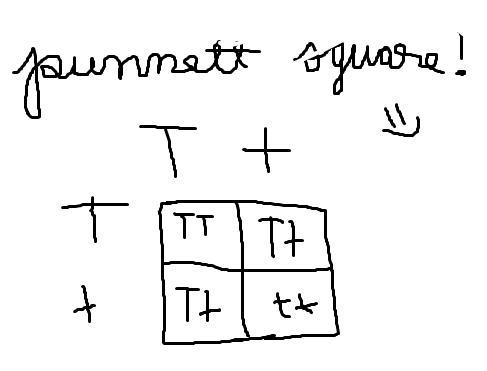 punnett square!
T t
T TT Tt
t Tt tt